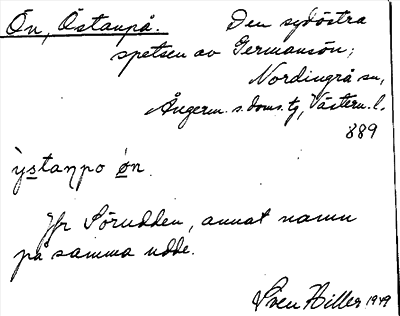 Ön, Östanpå. Den sydöstra
spetsen av Germansön;
Nordingrå sn,
Ångerm. s. doms. tg, Västern. l.
889
ỳstaŋpo ön
Jfr Sörudden, annat namn
på samma udde.
Sven Hiller 1949